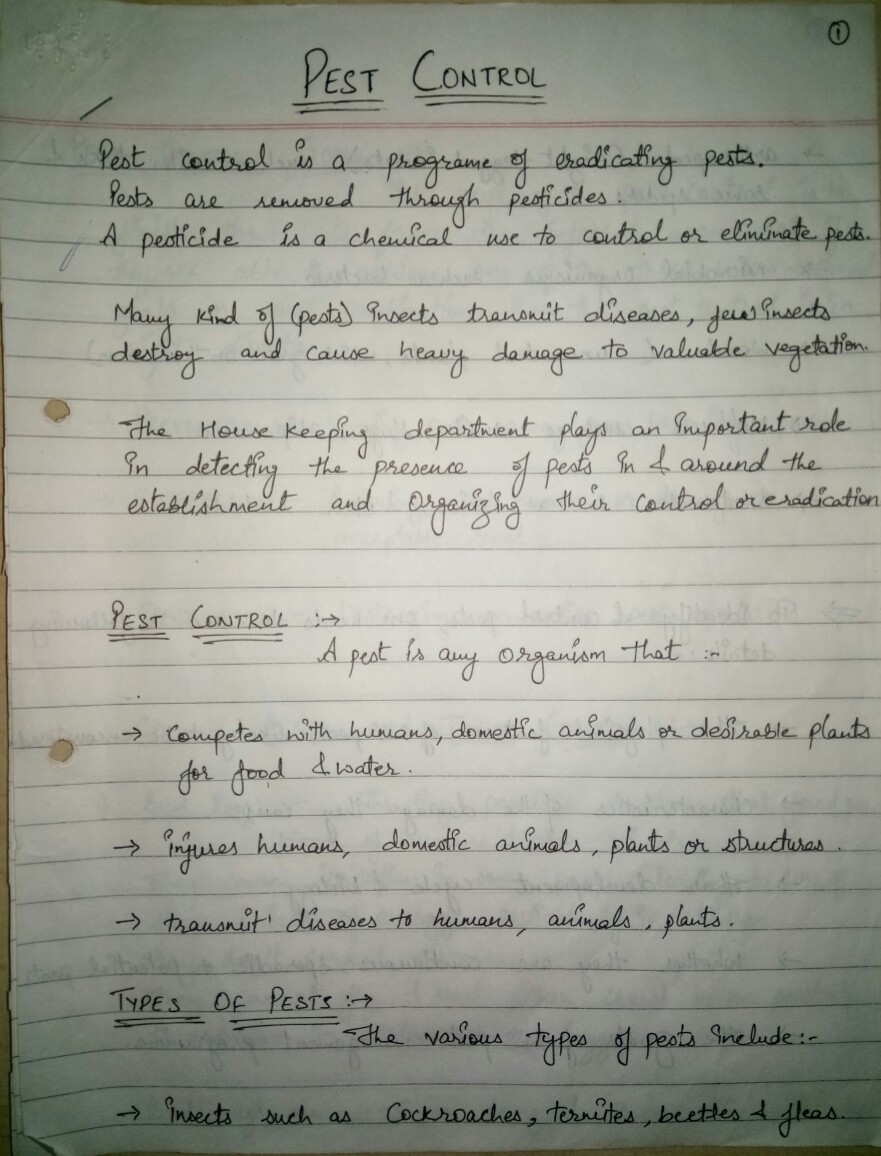 ①
PEST CONTROL
Pest control is a programe of eradicating pests.
Pests are removed through pesticides.
A pesticide is a chemical use to control or eliminate pests.
Many kind of (pests) insects transmit diseases, few insects
destroy and cause heavy damage to valuable vegetation.
The House keeping department plays an important role
in detecting the presence of pests in & around the
establishment and Organizing their control or eradication
PEST CONTROL :→
A pest is any organism that :-
→ Competes with humans, domestic animals or desirable plants
for food & water.
→ injures humans, domestic animals, plants or structures.
→ transmit diseases to humans, animals, plants.
TYPES OF PESTS :→
The various types of pests include :-
→ insects such as Cockroaches, termites, beetles & fleas.